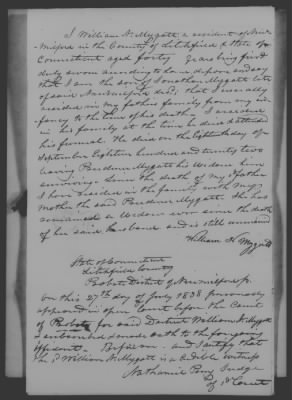 I William N. Mygatt a resident of New
Milford in the County of Litchfield & State of
Connecticut aged forty years being first
duly sworn according to law depose and say
that I am the son of Jonathan Mygatt late
of said New Milford decd; that I usually
resided in my father family from my in-
fancy to the time of his death; I resided
in his family at the time he died & attended
his funeral. He died on the day of
September Eighteen hundred and twenty two
leaving Prudence Mygatt his widow him
surviving. Since the death of my father
I have resided in the family with my
mother the said Prudence Mygatt. She has
remained a widow ever since the death
of her said husband and is still unmarried
William N Mygatt
State of Connecticut
Litchfield County
Probate District of New Milford ss.
On this 27th day of July 1838 personally
appeared in open Court before the Court
of Probate for said District William N. Mygatt
& subscribed & made oath to the foregoing
affidavit. Before me and I certify that
the sd William N. Mygatt is a credible witness
Nathaniel Perry Judge
of sd Court